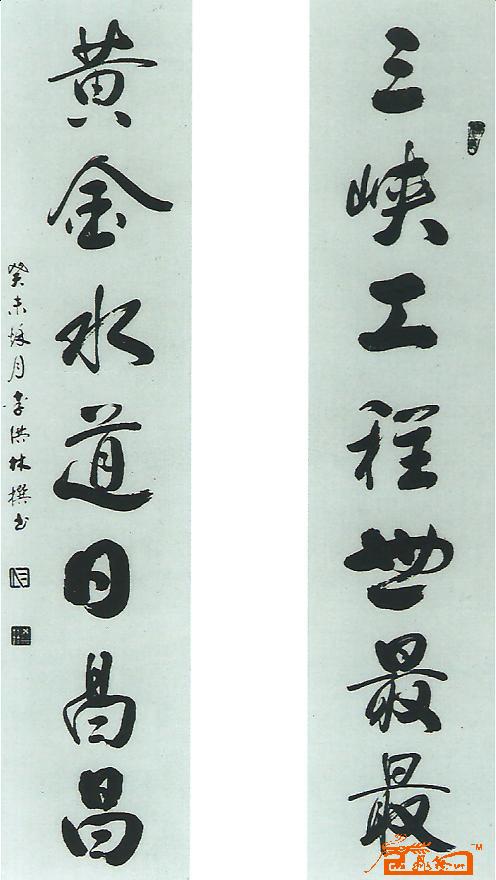 三峡工程世最最
黄金水道日昌昌
癸未秋月李洪林撰书